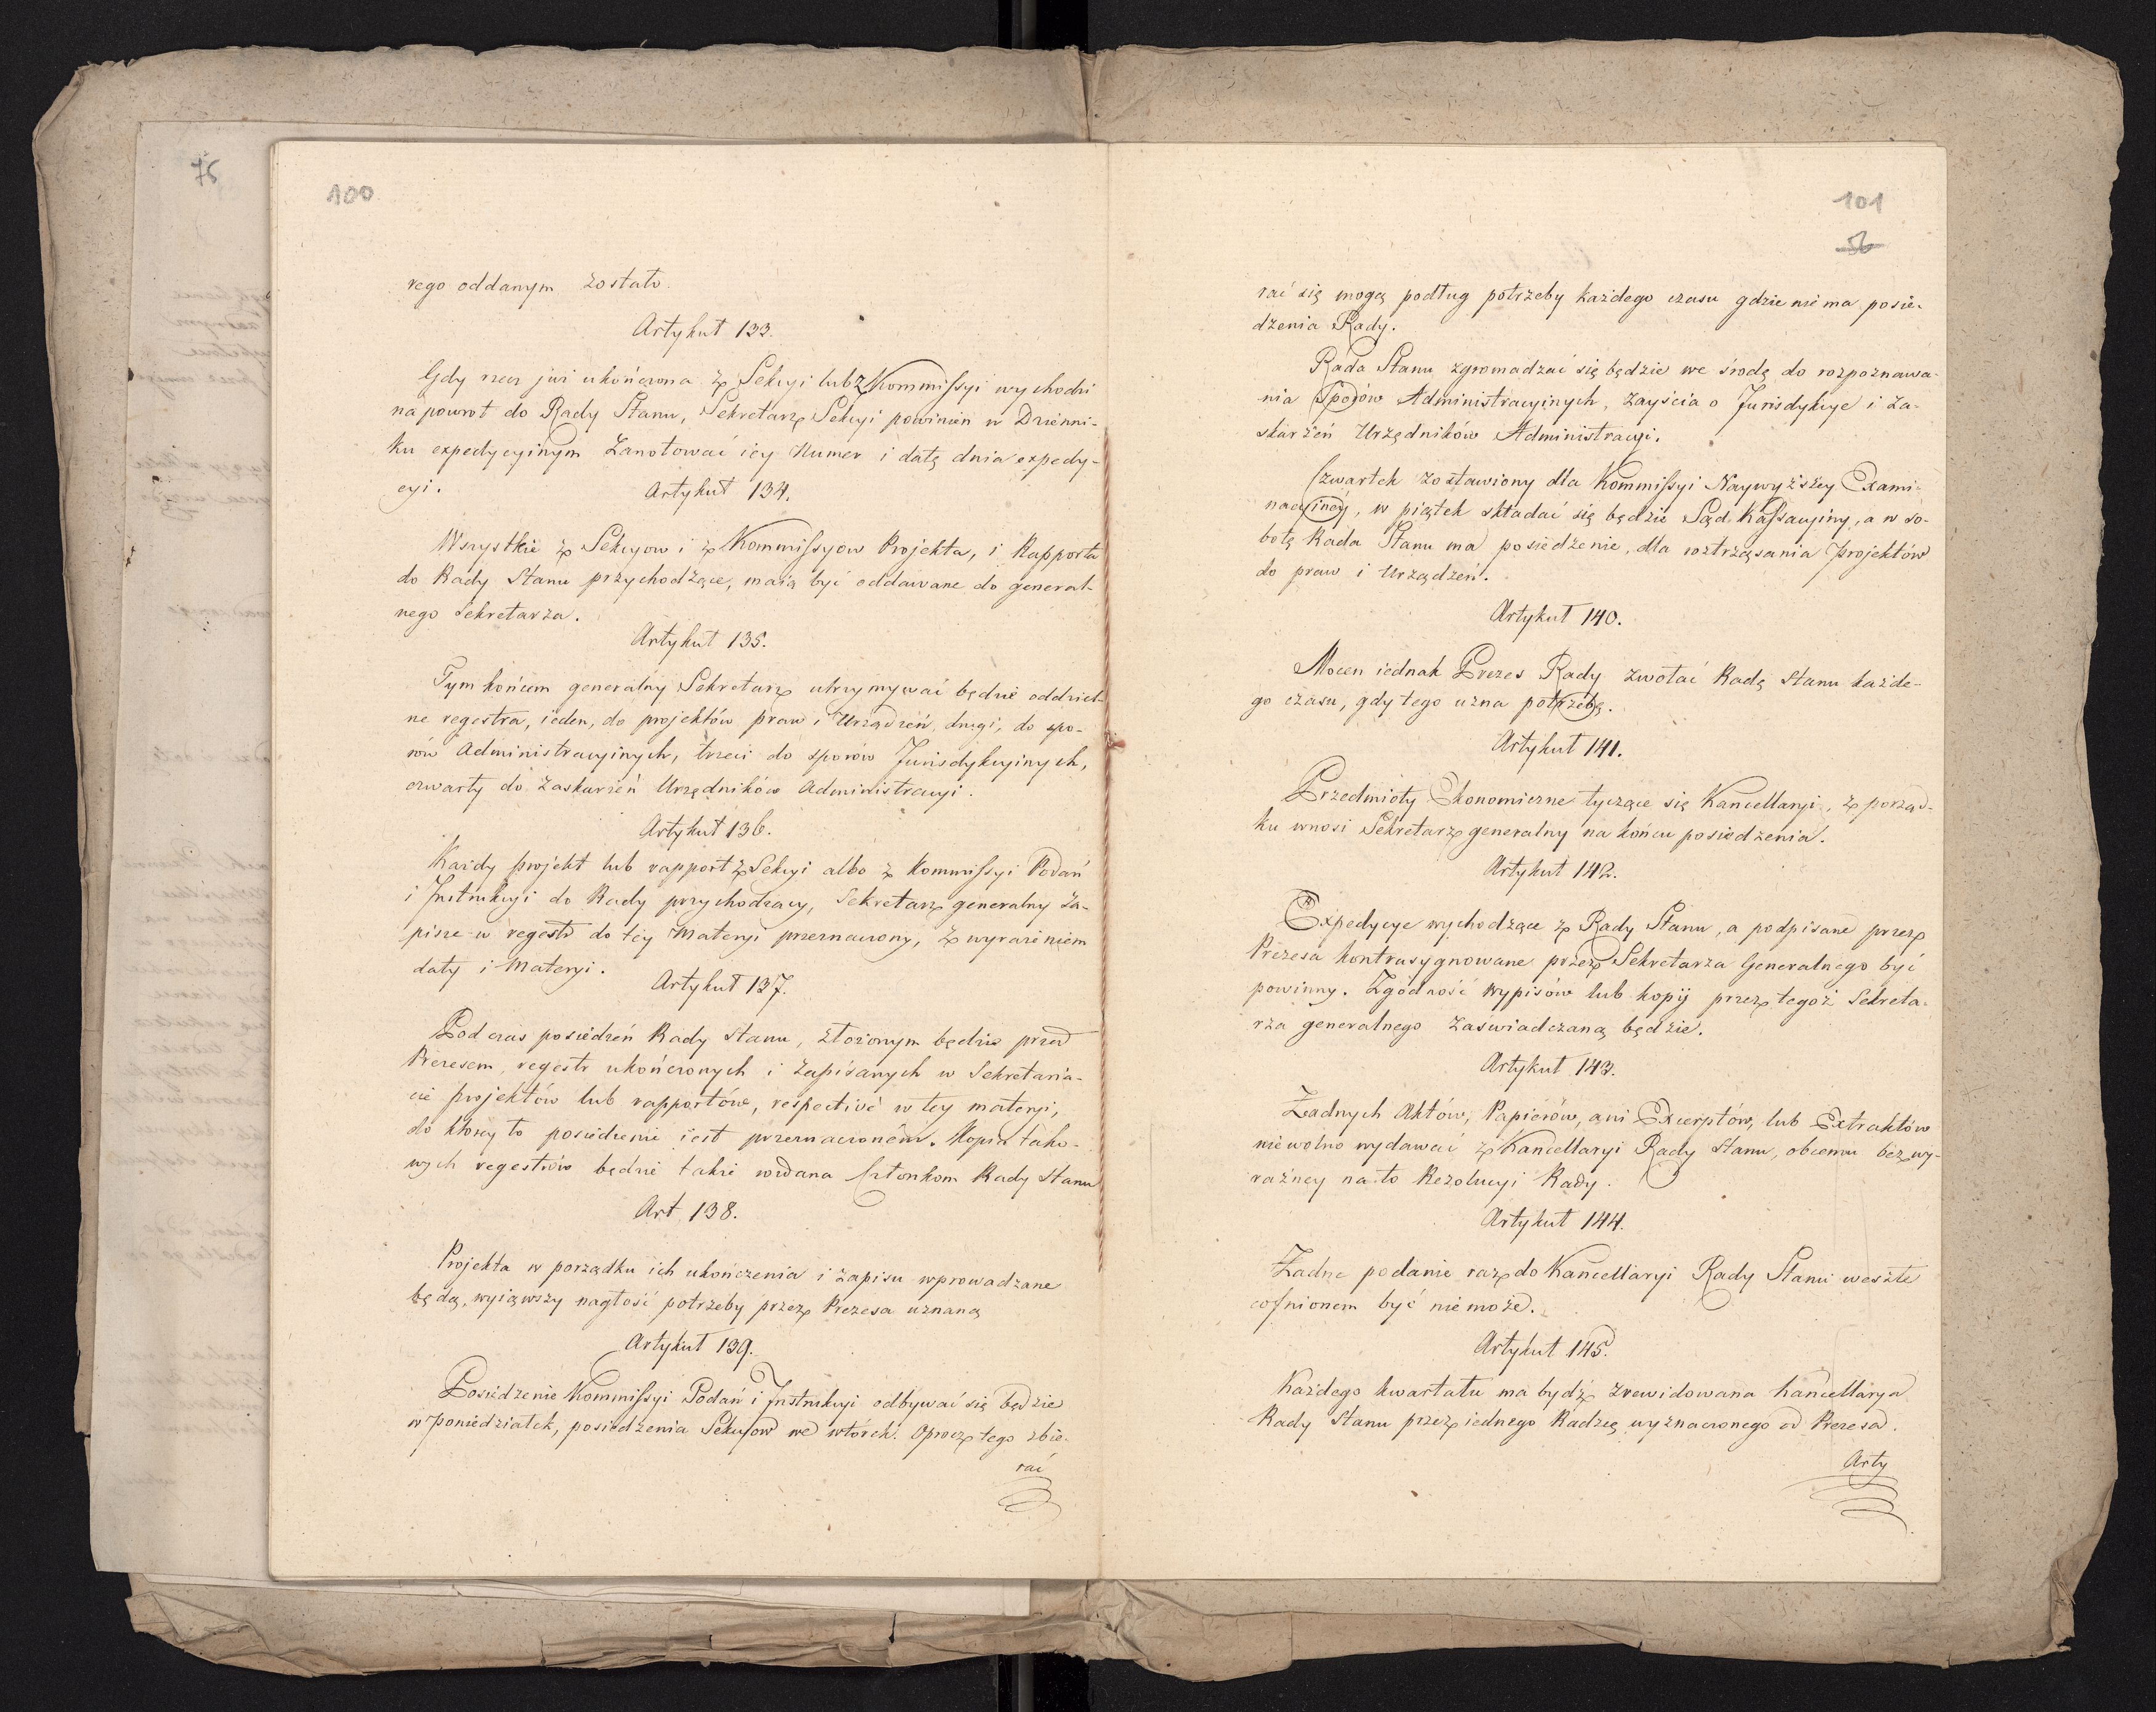 75
100
rego oddanym zostało.
Artykuł 133.
Gdy rzecz już ukończona z Sekcyi lub z Kommissyi wychodzi
na powrot do Rady Stanu, Sekretarz Sekcyi powinien w Dzienni-
ku expedycyinym zanotować iey Numer i datę dnia expedy-
cyi.
Artykuł 134.
Wszystkie z Sekcyow i z Kommissyow Projekta, i Rapporta
do Rady Stanu przychodzące, maią być oddawane do general-
nego Sekretarza.
Artykuł 135.
Tym końcem generalny Sekretarz utrzymywać będzie oddziel-
ne regestra, ieden, do projektów praw i Urządzeń, drugi, do spo-
rów Administracyinych, trzeci do sporów Jurisdykcyinych,
czwarty do zaskarżeń Urzędników Administracyi.
Artykuł 136.
Każdy projekt lub rapport z Sekcyi albo z Kommissyi Podań
i Instrukcyi do Rady przychodzący, Sekretarz generalny za-
pisze w regestr do tey Materyi przeznaczony, z wyrażeniem
daty i Materyi.
Artykuł 137.
Podczas posiedzeń Rady Stanu, złożonym będzie przed
Prezesem, regestr ukończonych i zapisanych w Sekretaria-
cie projektów lub rapportów, respective w tey materyi,
do ktorey to posiedzenie iest przeznaczoném. Kopia tako-
wych regestrów będzie także rozdana Członkom Rady Stanu
Art. 138.
Projekta w porządku ich ukończenia i zapisu wprowadzane
będą, wyiąwszy nagłość potrzeby przez Prezesa uznaną
Artykuł 139.
Posiedzenie Kommissyi Podań i Instrukcyi odbywać się będzie
w Poniedziałek, posiedzenia Sekcyow we wtórek. Oprocz tego zbie-
rać
101
56
rać się mogą podług potrzeby każdego czasu gdzie nie ma posie-
dzenia Rady.
Rada Stanu zgromadzać się będzie we środę do rozpoznawa-
nia Sporów Administracyinych, zayścia o Jurisdykcye i za-
skarżeń Urzędników Administracyi.
Czwartek zostawiony dla Kommissyi Naywyższey Exami-
nacyiney, w piątek składać się będzie Sąd Kassacyiny, a w so-
botę Rada Stanu ma posiedzenie, dla roztrząsania projektów
do praw i Urządzeń.
Artykuł 140.
Mocen iednak Prezes Rady zwołać Radę Stanu każde-
go czasu, gdy tego uzna potrzebę.
Artykuł 141.
Przedmioty Ekonomiczne tyczące się Kancellaryi, z porząd-
ku wnosi Sekretarz generalny na końcu posiedzenia.
Artykuł 142.
Expedycye wychodzące z Rady Stanu, a podpisane przez
Prezesa kontrasygnowane przez Sekretarza Generalnego być
powinny. Zgodność wypisów lub kopij przez tegoż Sekreta-
rza generalnego zaświadczaną będzie.
Artykuł 143.
Żadnych Aktów, Papierów, ani Excerptów, lub Extraktów
nie wolno wydawać z Kancellaryi Rady Stanu, obcemu bez wy-
raźney na to Rezolucyi Rady.
Artykuł 144.
Żadne podanie raz do Kancellaryi Rady Stanu weszłe
cofnionem być nie może.
Artykuł 145.
Każdego kwartału ma bydź zrewidowana Kancellarya
Rady Stanu przez iednego Radzcę wyznaczonego od Prezesa.
Arty